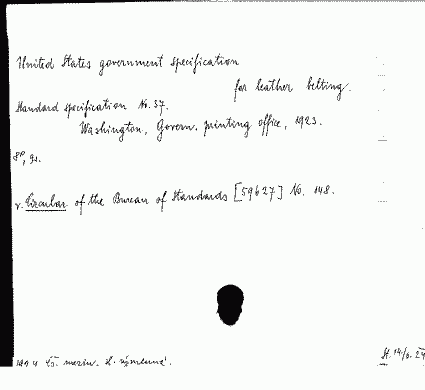 United States government specification
for leather belting.
Standard specification No. 37.
Washington, Govern. printing office, 1923.
8º, 9s.
v. Circular of the Bureau of Standards [59627] No. 148.
H. 14/6. 24